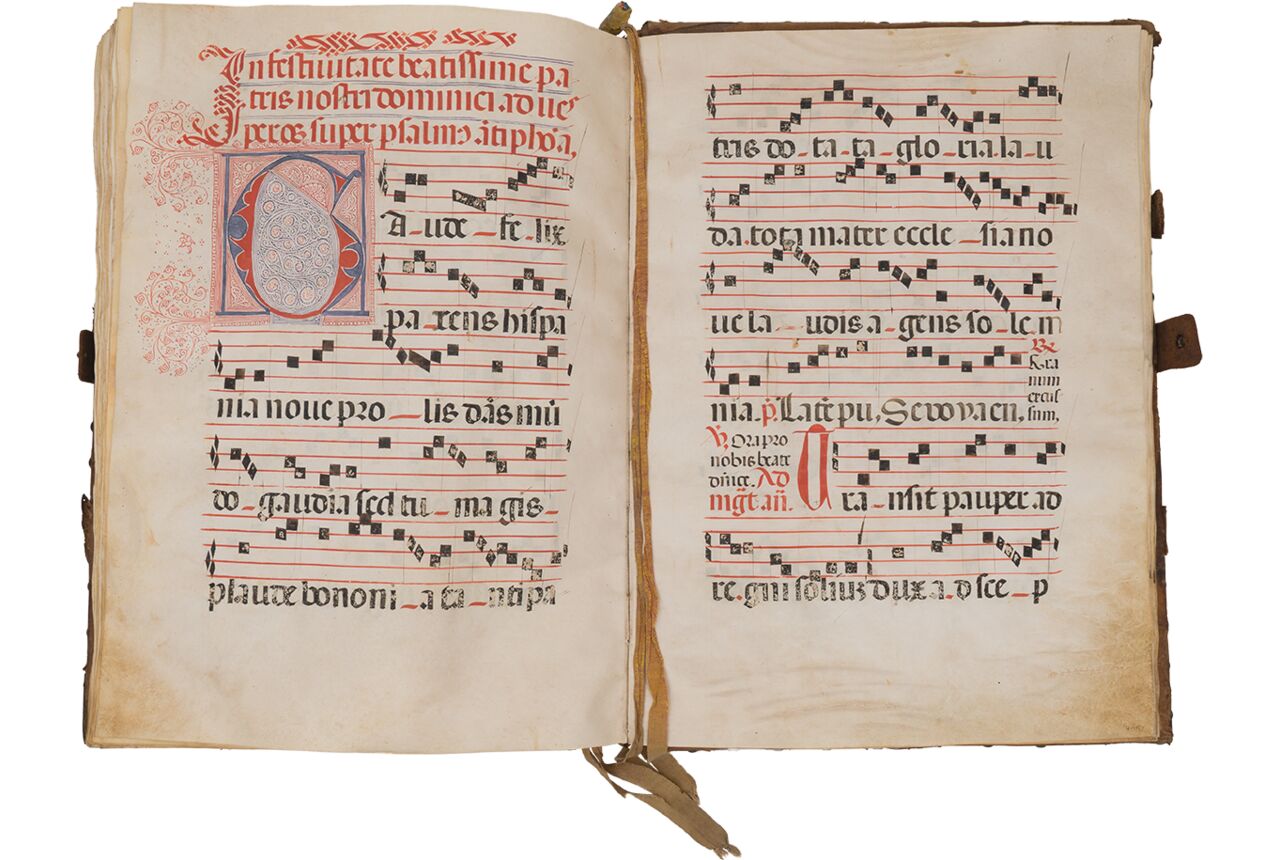 In festiuitate beatissime pa
tris nostri dominici ad ues
peras super psalmos añtiphona,
GAude felix
parens hispa
nia noue prolis dās mū
do gaudia sed tu magis
plaude bononia tanti pa
tris dotata gloria lau
da tota mater ecclesia no
ue laudis agens solem
nia. p̄. Laudate pu, Seuouaen,
Re
num
excel
sum,
℣. Ora pro
nobis beate
dñice. Ad
mḡt añ.
Transit pauper ad
regni solium dux ad scep